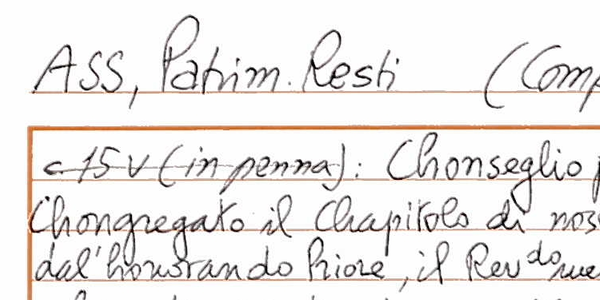 ASS, Patrim. Resti (Comp
c 15 v (in penna): Chonseglio
Chongregato il Chapitolo di nos
dal'honorando Priore, il Rev do